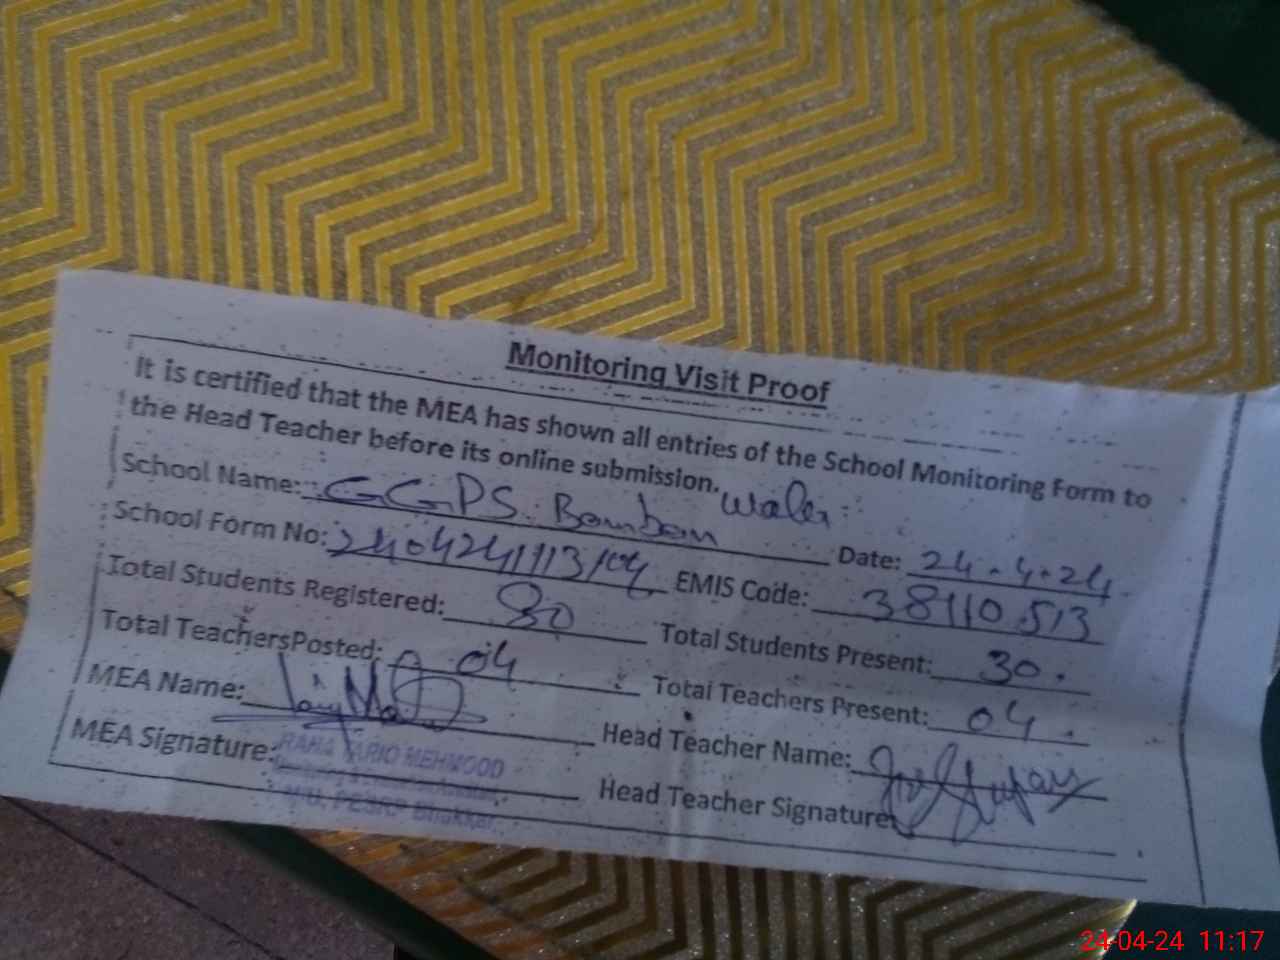 Monitoring Visit Proof
It is certified that the MEA has shown all entries of the School Monitoring Form to
the Head Teacher before its online submission.
School Name: GGPS. Bamban Wala Date: 24.4.24
School Form No: 2404241113104 EMIS Code: 38110513
Total Students Registered: 80 Total Students Present: 30.
Total TeachersPosted: 04 Total Teachers Present: 04.
MEA Name: Head Teacher Name:
MEA Signature: Head Teacher Signature:
RANA TARIQ MEHMOOD
Bhakkar
24-04-24 11:17